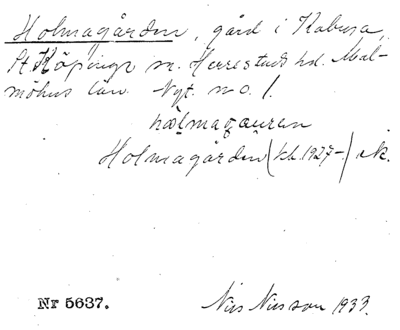 Holmagården, gård i Kabusa,
St. Köpinge sn. Herrestads hd. Mal-
möhus län. Nyt. no. 1.
hòlmagauren
Holmagården (kb. 1927-) ek.
Nr 5637. Nils Nilsson 1933.